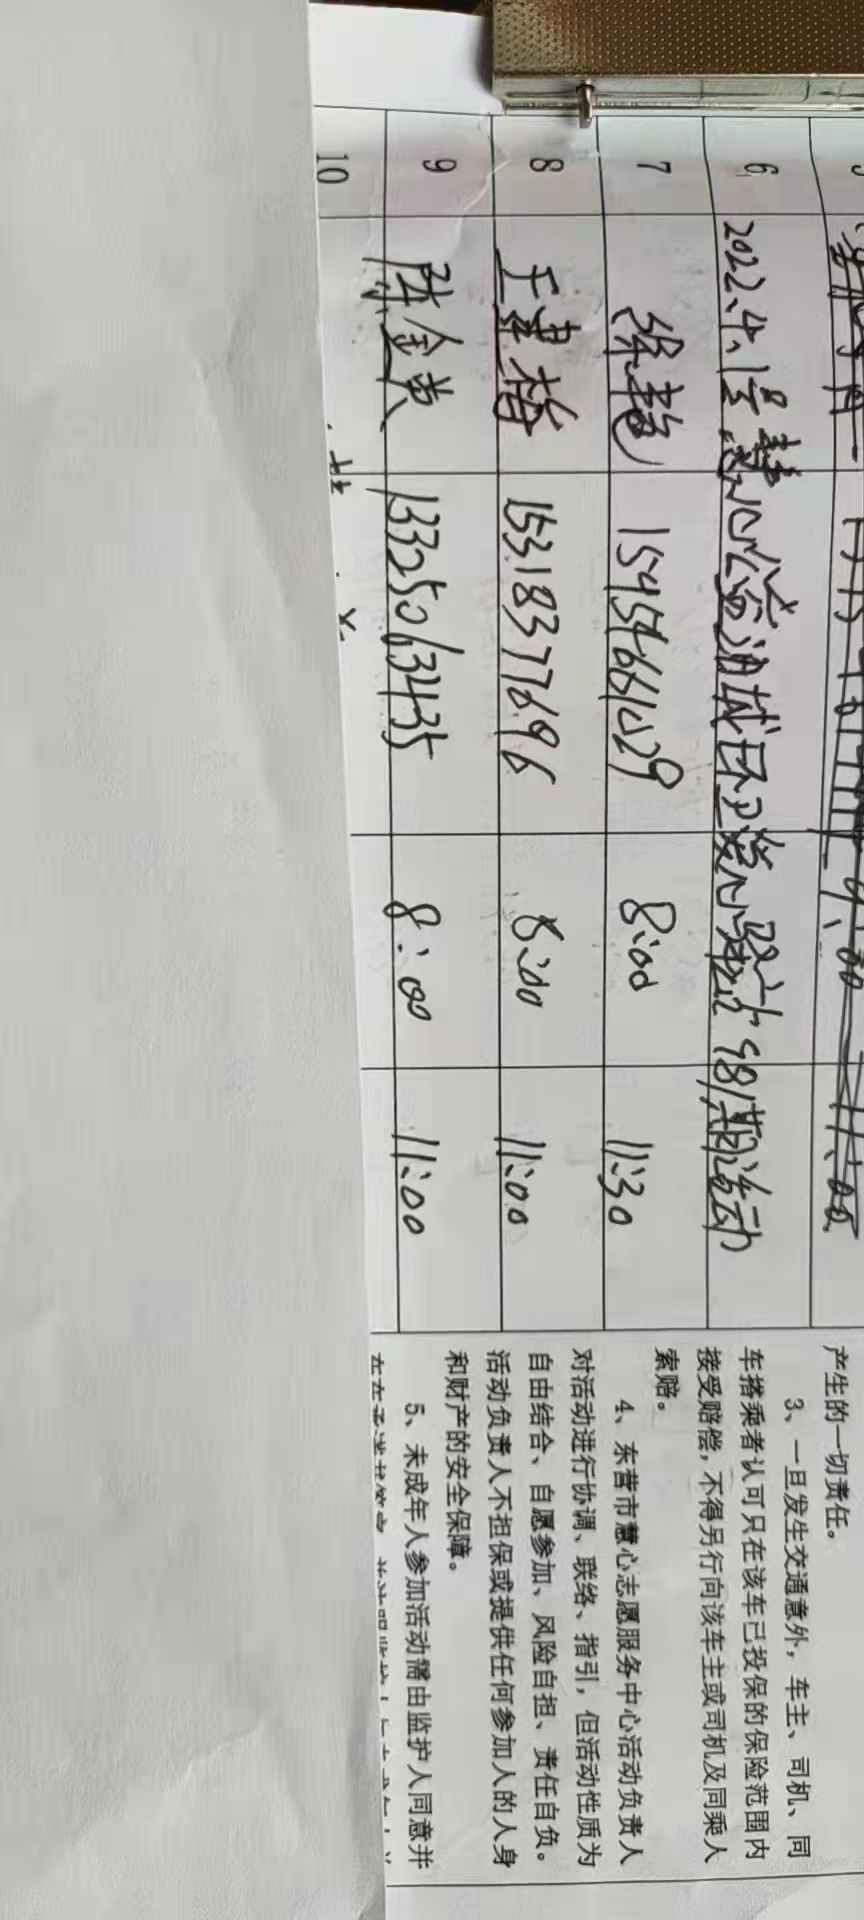 6 2022.4.1号慧心公益油城环卫爱心驿站98期活动
7 徐艳 15954661029 8:00 11:30
8 王建梅 15318377696 8:00 11:00
9 陈金英 13325063435 8:00 11:00
10
产生的一切责任。
3、一旦发生交通意外，车主、司机、同
车搭乘者认可只在该车已投保的保险范围内
接受赔偿，不得另行向该车主或司机及同乘人
索赔。
4、东营市慧心志愿服务中心活动负责人
对活动进行协调、联络、指引，但活动性质为
自由结合、自愿参加、风险自担、责任自负。
活动负责人不担保或提供任何参加人的人身
和财产的安全保障。
5、未成年人参加活动需由监护人同意并